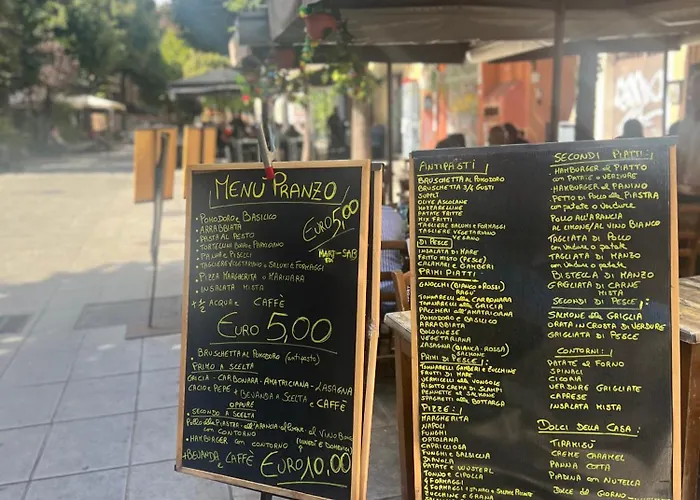 MENÙ PRANZO
EURO 5,00
MART-SAB
• POMODORO E BASILICO
• ARRABBIATA
• PASTA AL PESTO
• TORTELLINI BURRO E PARMIGIANO
• PANNA E PISELLI
• TAGLIERE VEGETARIANO O SALUMI E FORMAGGI
• PIZZA MARGHERITA O MARINARA
• INSALATA MISTA
+ ½ ACQUA E CAFFÈ
EURO 5,00
BRUSCHETTA AL POMODORO (antipasto)
PRIMO A SCELTA
GRICIA - CARBONARA - AMATRICIANA - LASAGNA
CACIO E PEPE + BEVANDA A SCELTA E CAFFÈ
OPPURE
• SECONDO A SCELTA
Pollo alla PIASTRA - all'ARANCIA AL LIMONE, AL VINO BIANCO
CON CONTORNO
• HAMBURGER CON CONTORNO
+ BEVANDA E CAFFÈ EURO 10,00
ANTIPASTI
BRUSCHETTA AL POMODORO
BRUSCHETTA 3/4 GUSTI
SUPPLÌ
OLIVE ASCOLANE
MOZZARELLINE
PATATE FRITTE
MIX FRITTI
TAGLIERE SALUMI E FORMAGGI
TAGLIERE VEGETARIANO
VEGANO
DI PESCE:
INSALATA DI MARE
FRITTO MISTO (PESCE)
CALAMARI E GAMBERI
PRIMI PIATTI
GNOCCHI (BIANCO O ROSSI)
RAGÙ
TONNARELLI ALLA CARBONARA
TONNARELLI ALLA GRICIA
PACCHERI ALL'AMATRICIANA
POMODORO E BASILICO
ARRABBIATA
BOLOGNESE
VEGETARIANA
LASAGNA (BIANCA - ROSSA)
SALMONE
PRIMI DI PESCE:
TONNARELLI GAMBERI E ZUCCHINE
FRUTTI DI MARE
VERMICELLI ALLA VONGOLE
RISOTTO CREMA DI SCAMPI
PENNETTE AL SALMONE
SPAGHETTI ALLA BOTTARGA
PIZZE:
MARGHERITA
NAPOLI
FUNGHI
ORTOLANA
CAPRICCIOSA
FUNGHI E SALSICCIA
DIAVOLA
PATATE E WURSTEL
TONNO E CIPOLLA
4 FORMAGGI
4 FORMAGGI E SALSICCIA
ZUCCHINE E GRANA
SECONDI PIATTI:
• HAMBURGER AL PIATTO
con PATATE O VERDURE
• HAMBURGER AL PANINO
• PETTO DI POLLO ALLA PIASTRA
con patate o verdure
POLLO ALL'ARANCIA
AL LIMONE/AL VINO BIANCO
TAGLIATA DI POLLO
con verdure o patate
TAGLIATA DI MANZO
con verdure o patate
BISTECCA DI MANZO
GRIGLIATA DI CARNE
MISTA
SECONDI DI PESCE:
SALMONE ALLA GRIGLIA
ORATA IN CROSTA DI VERDURE
GRIGLIATA DI PESCE
CONTORNI:
PATATE AL FORNO
SPINACI
CICORIA
VERDURE GRIGLIATE
CAPRESE
INSALATA MISTA
DOLCI DELLA CASA:
TIRAMISÙ
CREME CARAMEL
PANNA COTTA
PIZZA CON NUTELLA
DOLCE DEL GIORNO